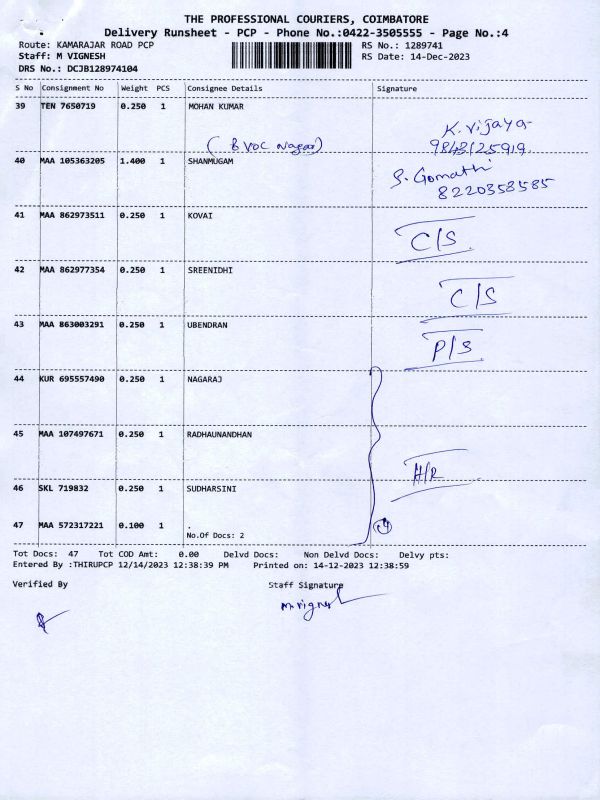 THE PROFESSIONAL COURIERS, COIMBATORE
Delivery Runsheet - PCP - Phone No.:0422-3505555 - Page No.:4
Route: KAMARAJAR ROAD PCP RS No.: 1289741
Staff: M VIGNESH RS Date: 14-Dec-2023
DRS No.: DCJB128974104
S No Consignment No Weight PCS Consignee Details Signature
39 TEN 7650719 0.250 1 MOHAN KUMAR
K. Vijaya
( B VOC Nagar) 9843125919
40 MAA 105363205 1.400 1 SHANMUGAM
S. Gomathi
8220358585
41 MAA 862973511 0.250 1 KOVAI
C/S
42 MAA 862977354 0.250 1 SREENIDHI
C/S
43 MAA 863003291 0.250 1 UBENDRAN
P/S
44 KUR 695557490 0.250 1 NAGARAJ
45 MAA 107497671 0.250 1 RADHAUNANDHAN
H/R
46 SKL 719832 0.250 1 SUDHARSINI
47 MAA 572317221 0.100 1 .
No.Of Docs: 2
Tot Docs: 47 Tot COD Amt: 0.00 Delvd Docs: Non Delvd Docs: Delvy pts:
Entered By :THIRUPCP 12/14/2023 12:38:39 PM Printed on: 14-12-2023 12:38:59
Verified By Staff Signature
M. Vignesh